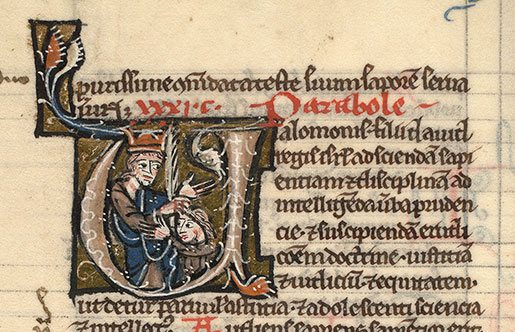 purissime ꝯmdata teste suum saporē serua
uerit XXXI.C. Parabole
alomonis. filii dauid
regis isrl̄. ad sciendā sapi
entiam ⁊ disciplinam ad
intelligenda uba pruden
cie. ⁊ suscipiendā eruditi
onem doctrine. iusticiā
⁊ iudicium ⁊ equitatem.
ut detur paruulis astutia. ⁊ adolescenti sciencia
⁊ intellectus. Audiens sapiens